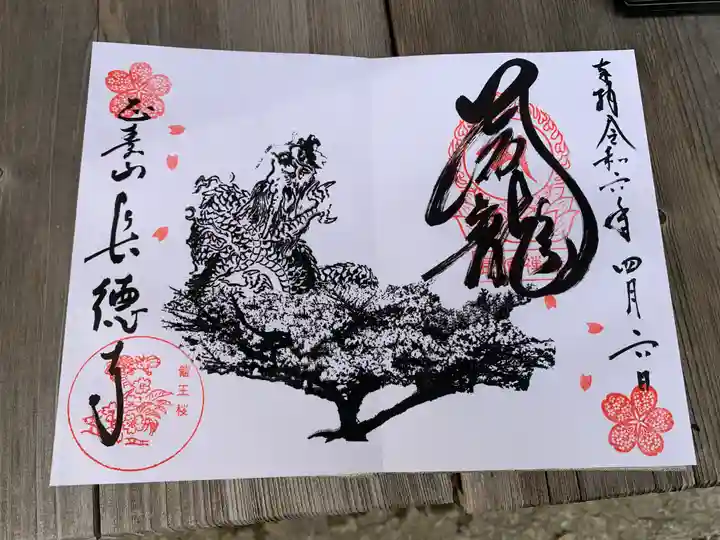 奉拝令和六年四月六日
龍
山長徳寺
龍王桜